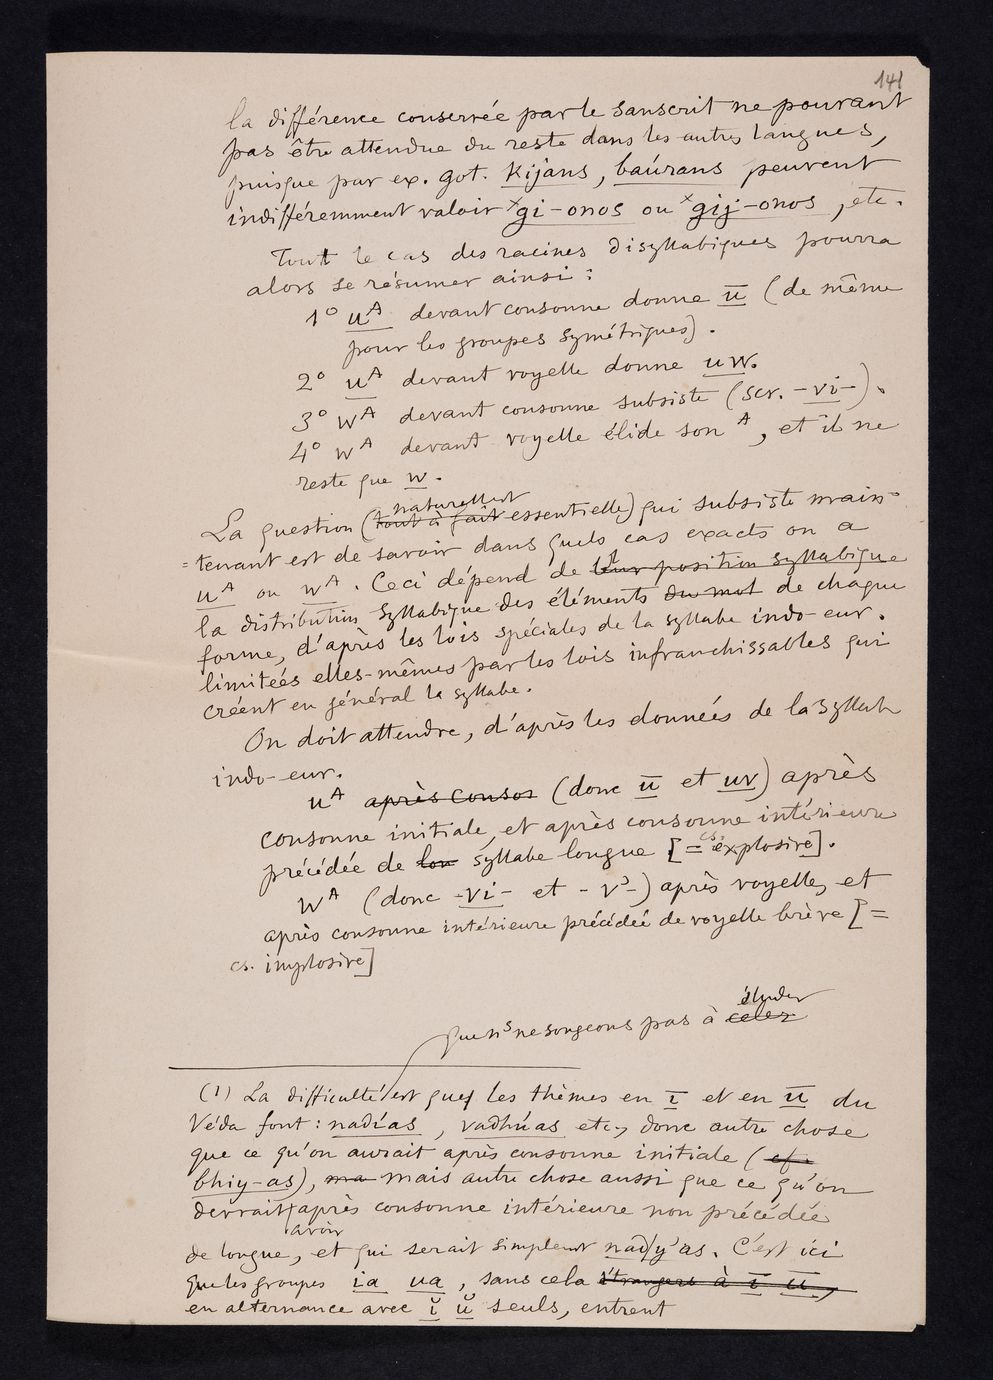 141
la différence conservée par le Sanscrit ne pouvant
pas être attendue du reste dans les autres langues,
puisque par ex. got. kijans, baúrans peuvent
indifféremment valoir ˣgi-onos ou ˣgij-onos, etc.
Tout le cas des racines disyllabiques pourra
alors se résumer ainsi :
1° uᴬ devant consonne donne ū (de même
pour les groupes symétriques).
2° uᴬ devant voyelle donne uw.
3° wᴬ devant consonne subsiste (scr. -vi-).
4° wᴬ devant voyelle élide son ᴬ, et il ne
reste que w.
naturellemt
La question (tout à fait essentielle) qui subsiste main-
=tenant est de savoir dans quels cas exacts on a
uᴬ ou wᴬ. Ceci dépend de leur position syllabique
la distribution syllabique des éléments du mot de chaque
forme, d'après les lois spéciales de la syllabe indo-eur.
limiteés elles-mêmes par les lois infranchissables qui
créent en général la syllabe.
On doit attendre, d'après les données de la syllabe
indo-eur.
uᴬ après conson (donc ū et uv) après
consonne initiale, et après consonne intérieure
précédée de lon syllabe longue [= cs. explosive].
wᴬ (donc -vi- et -v'-) après voyelle, et
après consonne intérieure précédée de voyelle brève [=
cs. implosive]
éluder
que ns ne songeons pas à celer
(1) La difficulté est que les thèmes en ī et en ū du
Véda font : nadías, vadhúas etc., donc autre chose
que ce qu'on aurait après consonne initiale (cf.
bhiy-as), ma mais autre chose aussi que ce qu'on
devrait après consonne intérieure non précédée
avoir
de longue, et qui serait simplemt nad/y'as. C'est ici
que les groupes ia ua, sans cela étrangers à ī ū,
en alternance avec ĭ ŭ seuls, entrent